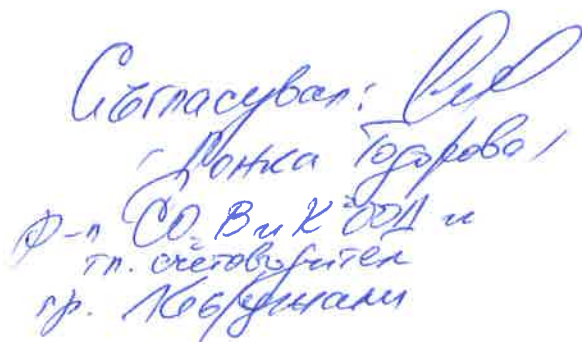 Съгласувал:
/Донка Тодорова/
Ф-л СО, ВиК ООД и
гл. счетоводител
гр. Кърджали